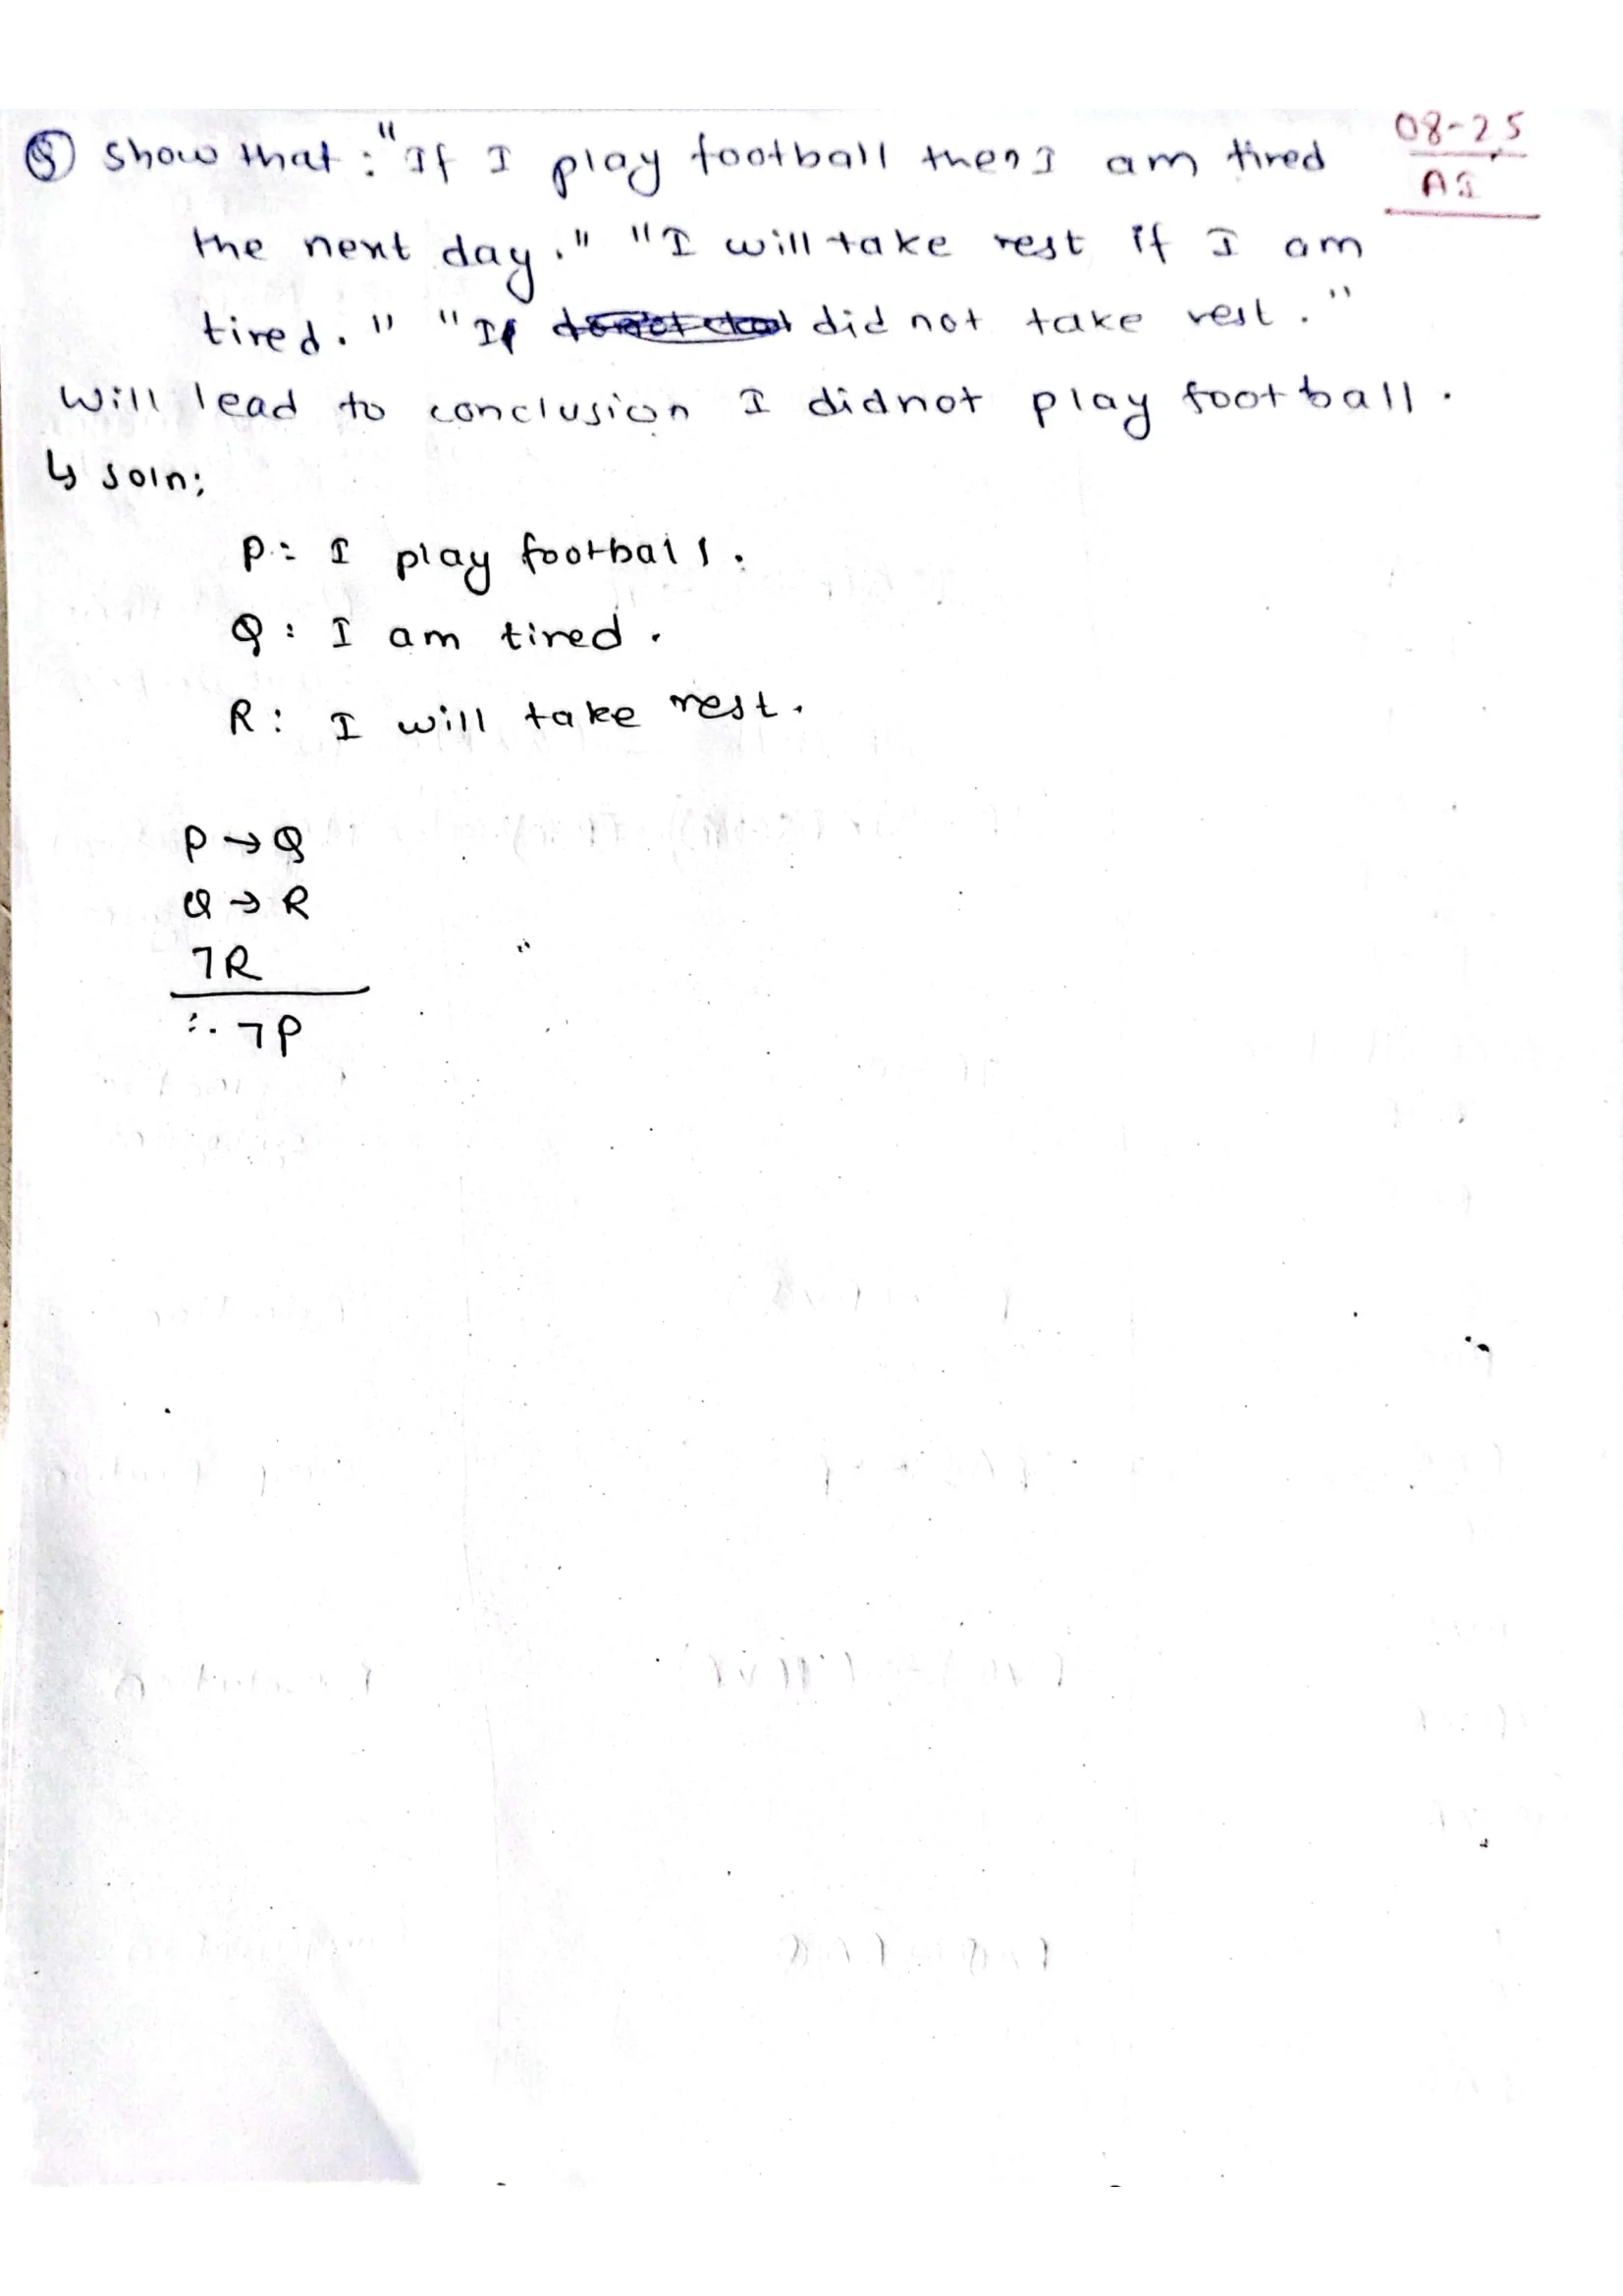 Q Show that: "If I play football then I am tired
08-25
AI
the next day." "I will take rest if I am
tired." "I did not take rest."
will lead to conclusion I didnot play football.
↳ Soln:
P: I play football.
Q: I am tired.
R: I will take rest.
P → Q
Q → R
¬R
∴ ¬P